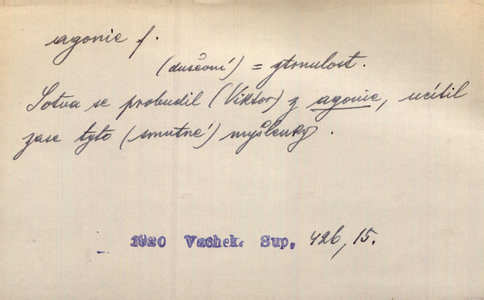 agonie f.
(duševní) = ztrnulost.
Sotva se probudil (Viktor) z agonie, ucítil
zase tyto (smutné) myšlenky.
1920 Vachek. Sup, 426, 15.